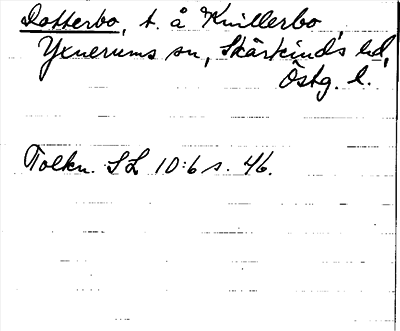 Dotterbo, t. å Knillerbo,
Yxnerums sn, Skärkinds hd,
Östg. l.
Tolkn. SL 10:6 s. 46.